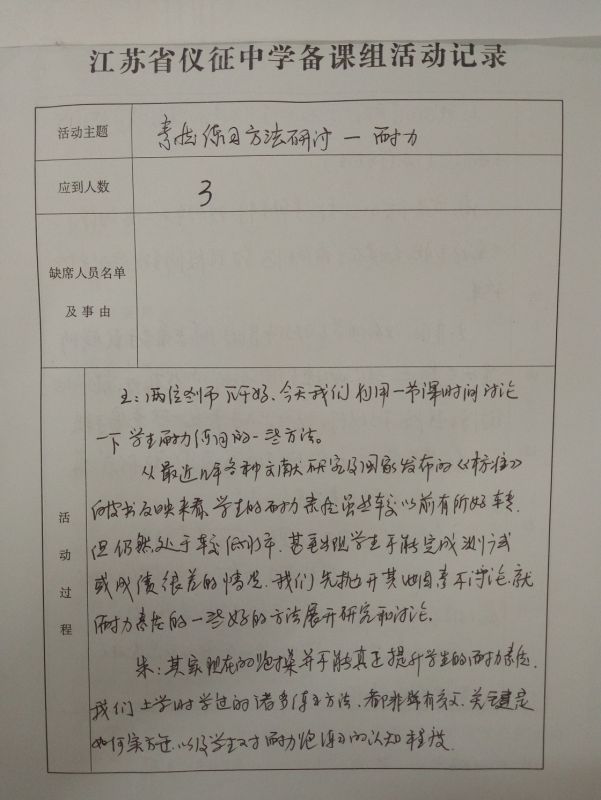 江苏省仪征中学备课组活动记录
活动主题
素质练习方法研讨 — 耐力
应到人数
3
缺席人员名单
及事由
活动过程
王:两位老师下午好,今天我们利用一节课时间讨论
一下学生耐力练习的一些方法。
从最近几年各种文献研究及国家发布的《标准》
的反映来看,学生的耐力素质虽然较以前有所好转,
但仍然处于较低水平,甚至出现学生不能完成测试
或成绩很差的情况,我们先抛开其他因素不讨论,就
耐力素质的一些好的方法展开研究和讨论。
朱:其实现在的跑操并不能真正提升学生的耐力素质,
我们上学时学过的诸多练习方法,都非常有效,关键是
如何实施,以及学生对耐力跑练习的认知程度